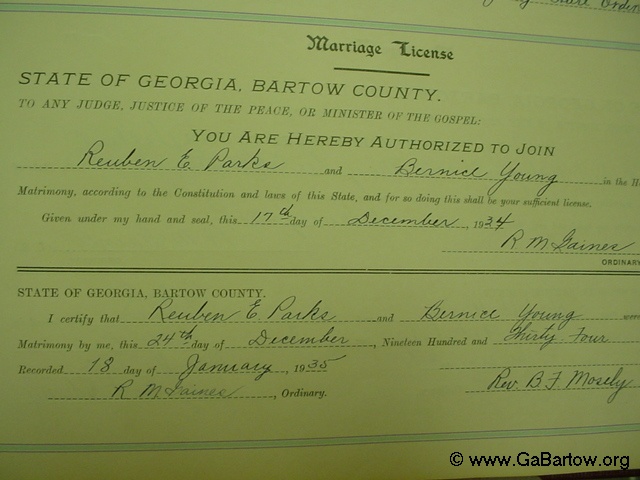 Marriage License
STATE OF GEORGIA, BARTOW COUNTY.
TO ANY JUDGE, JUSTICE OF THE PEACE, OR MINISTER OF THE GOSPEL:
YOU ARE HEREBY AUTHORIZED TO JOIN
Reuben E. Parks and Bernice Young in the H
Matrimony, according to the Constitution and laws of this State, and for so doing this shall be your sufficient license.
Given under my hand and seal, this 17th day of December, 1934
R M Gaines
ORDINARY
STATE OF GEORGIA, BARTOW COUNTY.
I certify that Reuben E. Parks and Bernice Young were
Matrimony by me, this 24th day of December, Nineteen Hundred and Thirty Four
Recorded 18 day of January, 1935
Rev. B F Mosely
R M Gaines, Ordinary.
© www.GaBartow.org